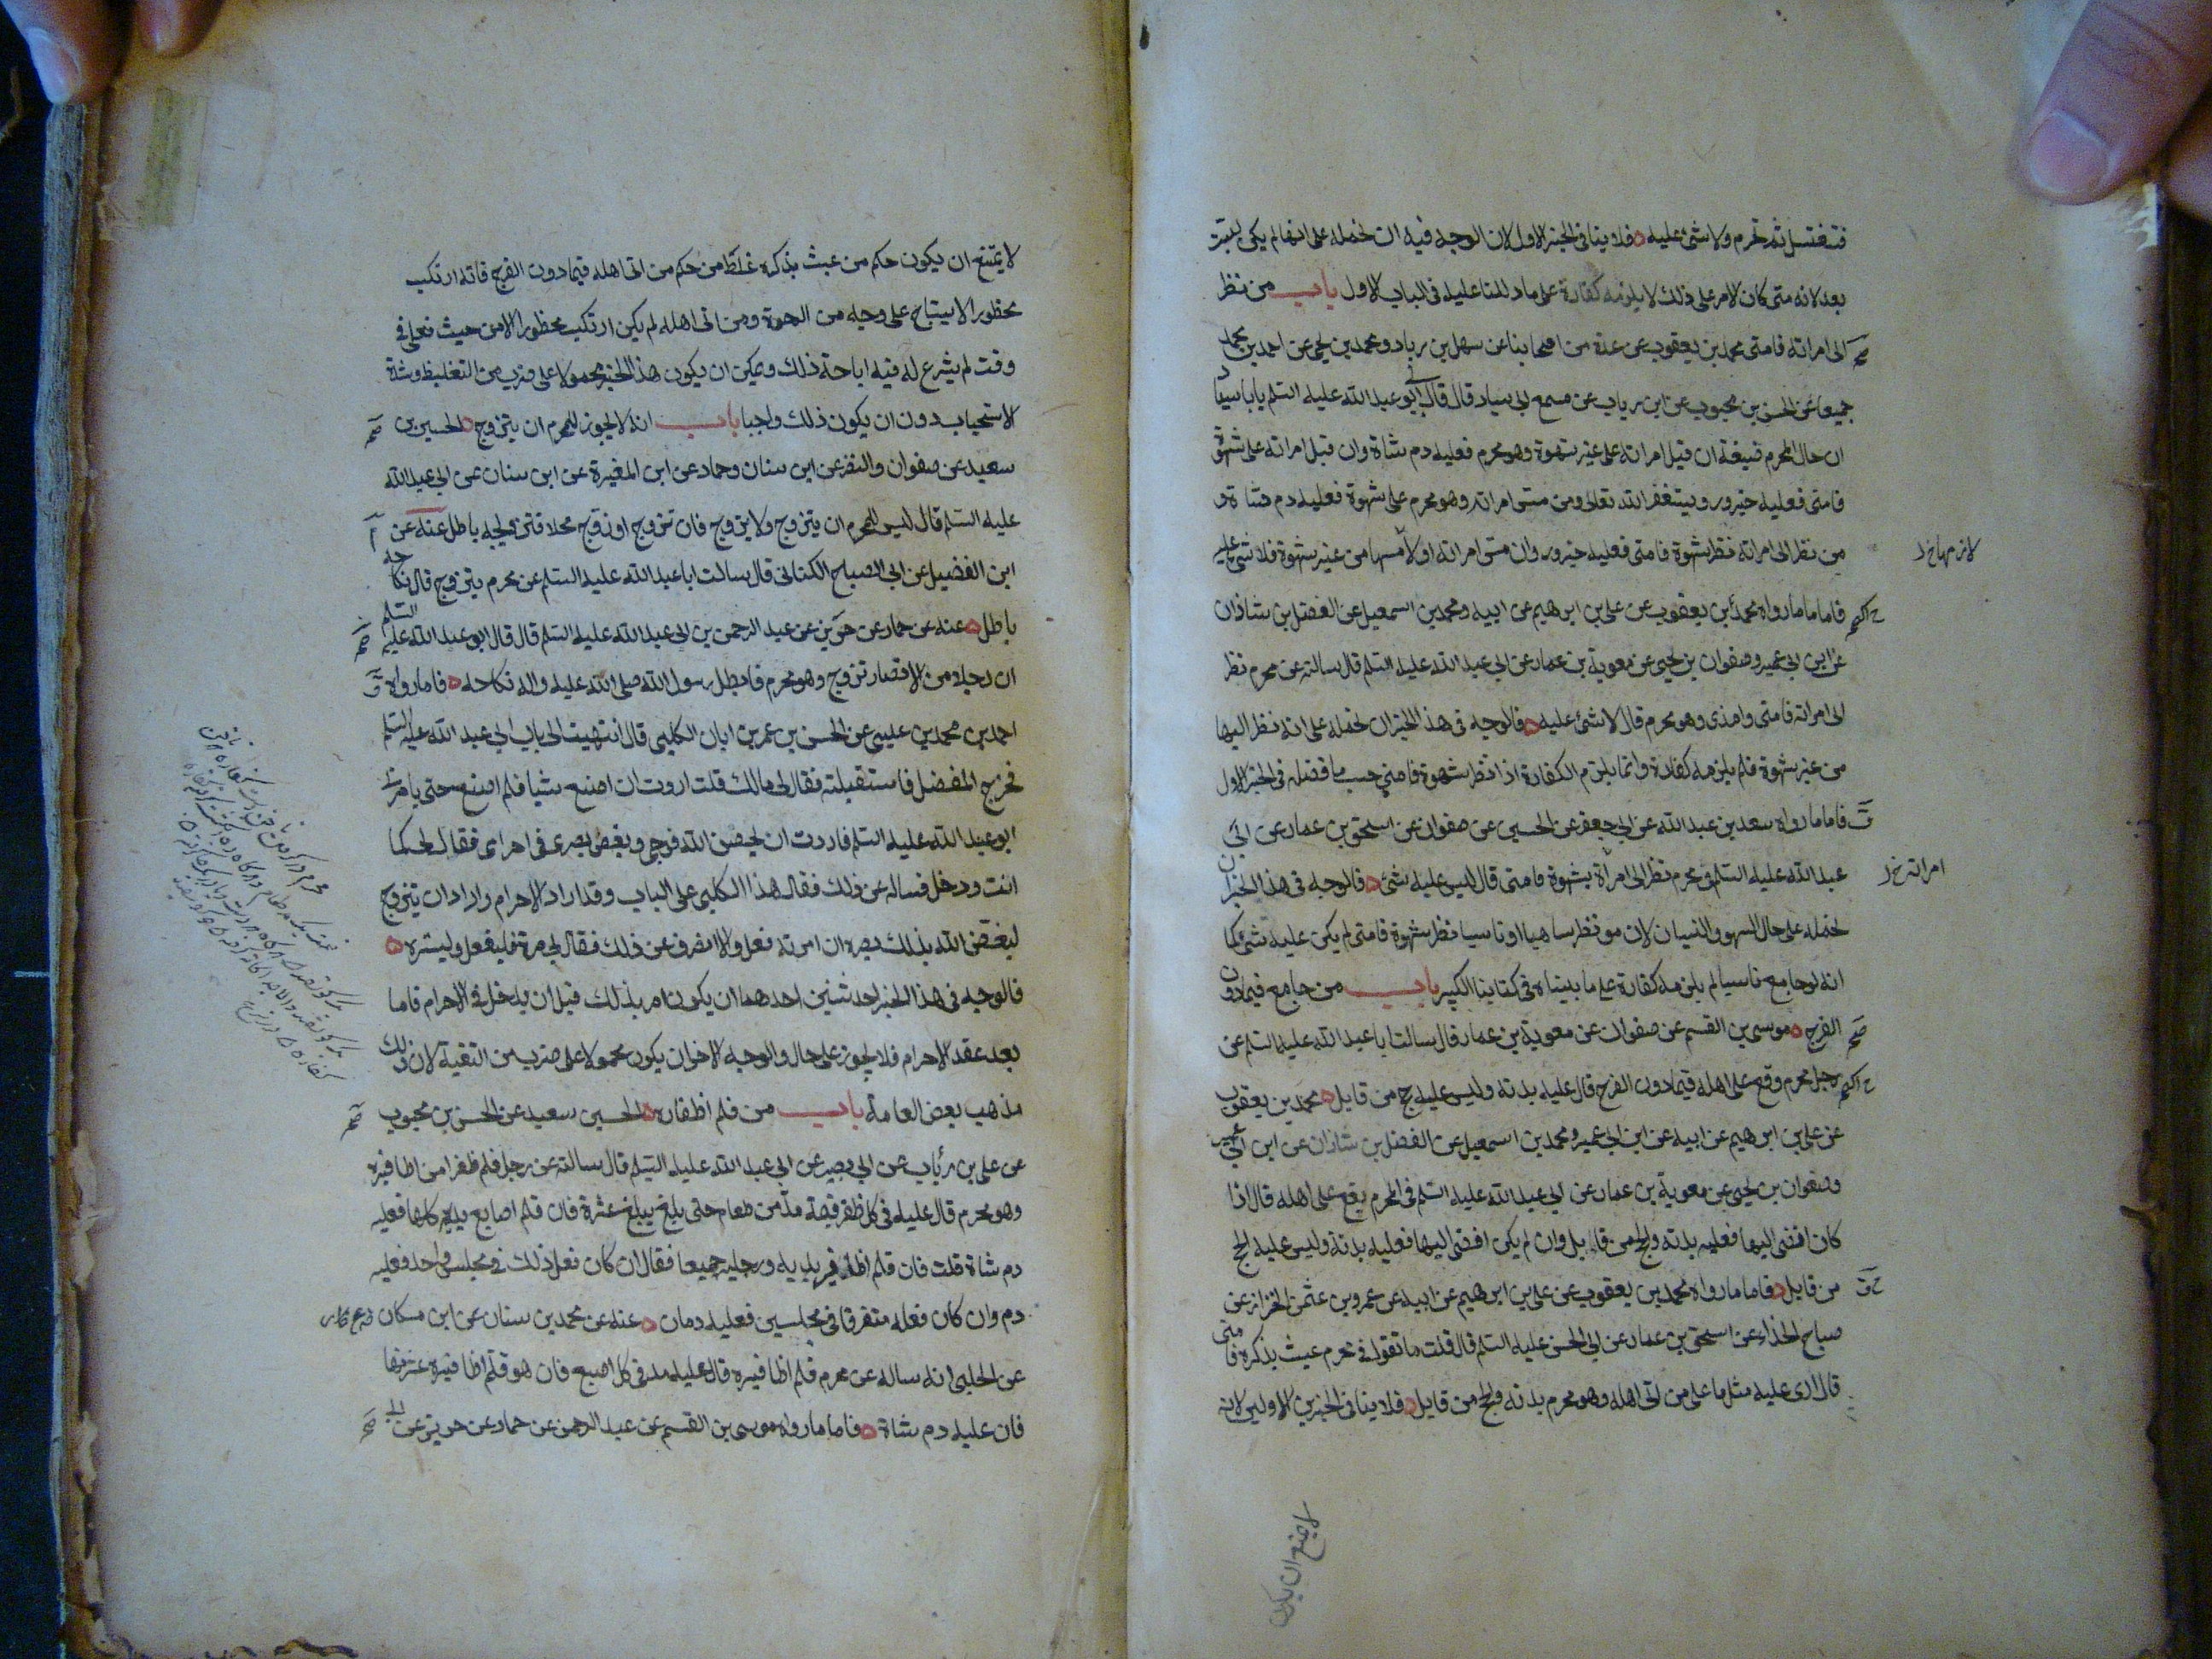 فتغتسل ثم تحرم ولا شئ عليه فلا ينافى الخبر الاول لان الوجه فيه ان نحمله على انها لم يكن لبت
بعد لانه متى كان الامر على ذلك لا يلزمه كفارة على ما دللنا عليه فى الباب الاول باب من نظر
الى امراته فامنى محمد بن يعقوب عن عدة من اصحابنا عن سهل بن زياد ومحمد بن يحيى عن احمد بن محمد
جميعا عن الحسن بن محبوب عن ابن رياب عن مسمع ابى سيار قال قال لى ابو عبد الله عليه السلم يابا سيار
ان حال المحرم ضيقة ان قبل امراته على غير شهوة وهو محرم فعليه دم شاة وان قبل امراته على شهوة
فامنى فعليه جزور ويستغفر الله تعالى ومن مس امراته وهو محرم على شهوة فعليه دم شاة و
من نظر الى امراته نظر شهوة فامنى فعليه جزور وان مس امراته او لامسها من غير شهوة فلا شئ عليه
لازمها خ ل
فاما ما رواه محمد بن يعقوب عن على بن ابرهيم عن ابيه ومحمد بن اسمعيل عن الفضل بن شاذان
عن ابن ابى عمير وصفوان بن يحيى عن معوية بن عمار عن ابى عبد الله عليه السلم قال سالته عن محرم نظر
الى امراته فامنى وامذى وهو محرم قال لا شئ عليه فالوجه فى هذا الخبر ان نحمله على انه نظر اليها
من غير شهوة فلم يلزمه كفارة وانما يلزم الكفارة اذا نظر بشهوة فامنى حسب ما فصله فى الخبر الاول
فاما ما رواه سعد بن عبد الله عن ابى جعفر عن الحسين عن صفوان عن اسحق بن عمار عن ابى
عبد الله عليه السلم فى محرم نظر الى امرأة بشهوة فامنى قال ليس عليه شئ فالوجه فى هذا الخبر ان
امراته خ ل
نحمله على حال السهو والنسيان لان من نظر ساهيا او ناسيا نظر شهوة فامنى لم يكن عليه شئ كما
انه لو جامع ناسيا لم يلزمه كفارة على ما بيناه فى كتابنا الكبير باب من جامع فيما دون
الفرج موسى بن القسم عن صفوان عن معوية بن عمار قال سالت ابا عبد الله عليه السلم عن
رجل محرم وقع على اهله فيما دون الفرج قال عليه بدنة وليس عليه حج من قابل محمد بن يعقوب
عن على بن ابرهيم عن ابيه عن ابن ابى عمير ومحمد بن اسمعيل عن الفضل بن شاذان عن ابن ابى عمير
وصفوان بن يحيى عن معوية بن عمار عن ابى عبد الله عليه السلم فى المحرم يقع على اهله قال اذا
كان افضى اليها فعليه بدنة والحج من قابل وان لم يكن افضى اليها فعليه بدنة وليس عليه الحج
من قابل فاما ما رواه محمد بن يعقوب عن على بن ابرهيم عن ابيه عن عمرو بن عثمن الخزاز عن
صباح الحذاء عن اسحق بن عمار عن ابى الحسن عليه السلم قال قلت ما تقول فى محرم عبث بذكره فامنى
قال ارى عليه مثل ما على من اتى اهله وهو محرم بدنه والحج من قابل فلا ينافى الخبرين الاولين لانه
لا يمتنع ان يكون
لا يمتنع ان يكون حكم من عبث بذكره غلظا من حكم من اتى اهله فيما دون الفرج فانه ارتكب
محظورا لا يستباح على وجه من الوجوه ومن اتى اهله لم يكن ارتكب محظورا الا من حيث فعل فى
وقت لم يشرع له فيه اباحة ذلك ويمكن ان يكون هذا الخبر محمولا على ضرب من التغليظ وشدة
الاستحباب دون ان يكون ذلك واجبا باب انه لا يجوز للمحرم ان يتزوج الحسين بن
سعيد عن صفوان والنضر عن ابن سنان وحماد عن ابن المغيرة عن ابن سنان عن ابى عبد الله
عليه السلم قال ليس للمحرم ان يتزوج ولا يزوج فان تزوج او زوج محلا فتزويجه باطل عنه عن
ابن الفضيل عن ابى الصباح الكنانى قال سالت ابا عبد الله عليه السلم عن محرم يتزوج قال نكاحه
باطل عنه عن حماد عن حريز عن عبد الرحمن بن ابى عبد الله عليه السلم قال قال ابو عبد الله عليه السلم
ان رجلا من الانصار تزوج وهو محرم فابطل رسول الله صلى الله عليه واله نكاحه فاما رواه
احمد بن محمد بن عيسى عن الحسن بن عمر بن ابان الكلبى قال انتهيت الى باب ابى عبد الله عليه السلم
فخرج المفضل فاستقبلته فقال لى مالك قلت اردت ان اصنع شيا فلم اصنع حتى يامرنى
ابو عبد الله عليه السلم فاردت ان يحصن الله فرجى ويغض بصرى فى احرامى فقال لى كما
انت ودخل فساله عن ذلك فقال هذا الكلبى على الباب وقد اراد الاحرام واراد ان يتزوج
ليغض الله بذلك بصره ان امرته فعل والا انصرف عن ذلك فقال لى مره فليفعل وليستره
فالوجه فى هذا الخبر احد شيئين احدهما ان يكون امر بذلك قبل ان يدخل فى الاحرام فاما
بعد عقد الاحرام فلا يجوز على حال والوجه الاخر ان يكون محمولا على ضرب من التقية لان ذلك
مذهب بعض العامة باب من قلم اظفاره الحسين سعيد عن الحسن بن محبوب
عن على بن رئاب عن ابى بصير عن ابى عبد الله عليه السلم قال سالته عن رجل قلم ظفرا من اظافيره
وهو محرم قال عليه فى كل ظفر قيمة مد من طعام حتى يبلغ عشرة فان قلم اصابع يديه كلها فعليه
دم شاة قلت فان قلم اظافير يديه ورجليه جميعا فقال ان كان فعل ذلك فى مجلس واحد فعليه
دم وان كان فعله متفرقا فى مجلسين فعليه دمان عنه عن محمد بن سنان عن ابن مسكان
عن الحلبى انه ساله عن محرم قلم اظافيره قال عليه مد فى كل اصبع فان هو قلم اظافيره عشرتها
فان عليه دم شاة فاما ما رواه موسى بن القسم عن عبد الرحمن عن حماد عن حريز عن